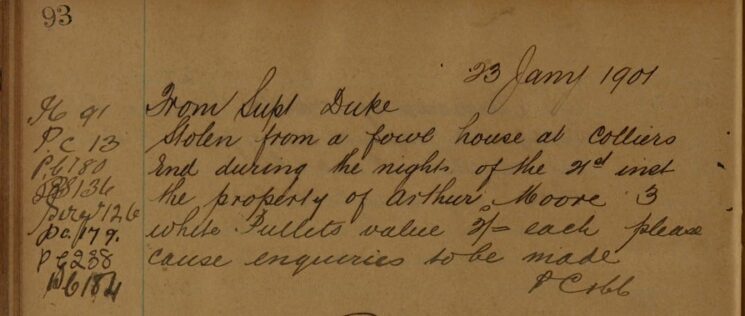 93
23 Jany 1901
From Supt Duke
Stolen from a fowl house at Colliers
End during the nights of the 21st inst
the property of Arthur Moore 3
white Pullets value 2/= each please
cause enquiries to be made
P Cobb
91
P.C 13
P.C 180
136
Sergt 126
PC. 179.
P C 238
P C 184